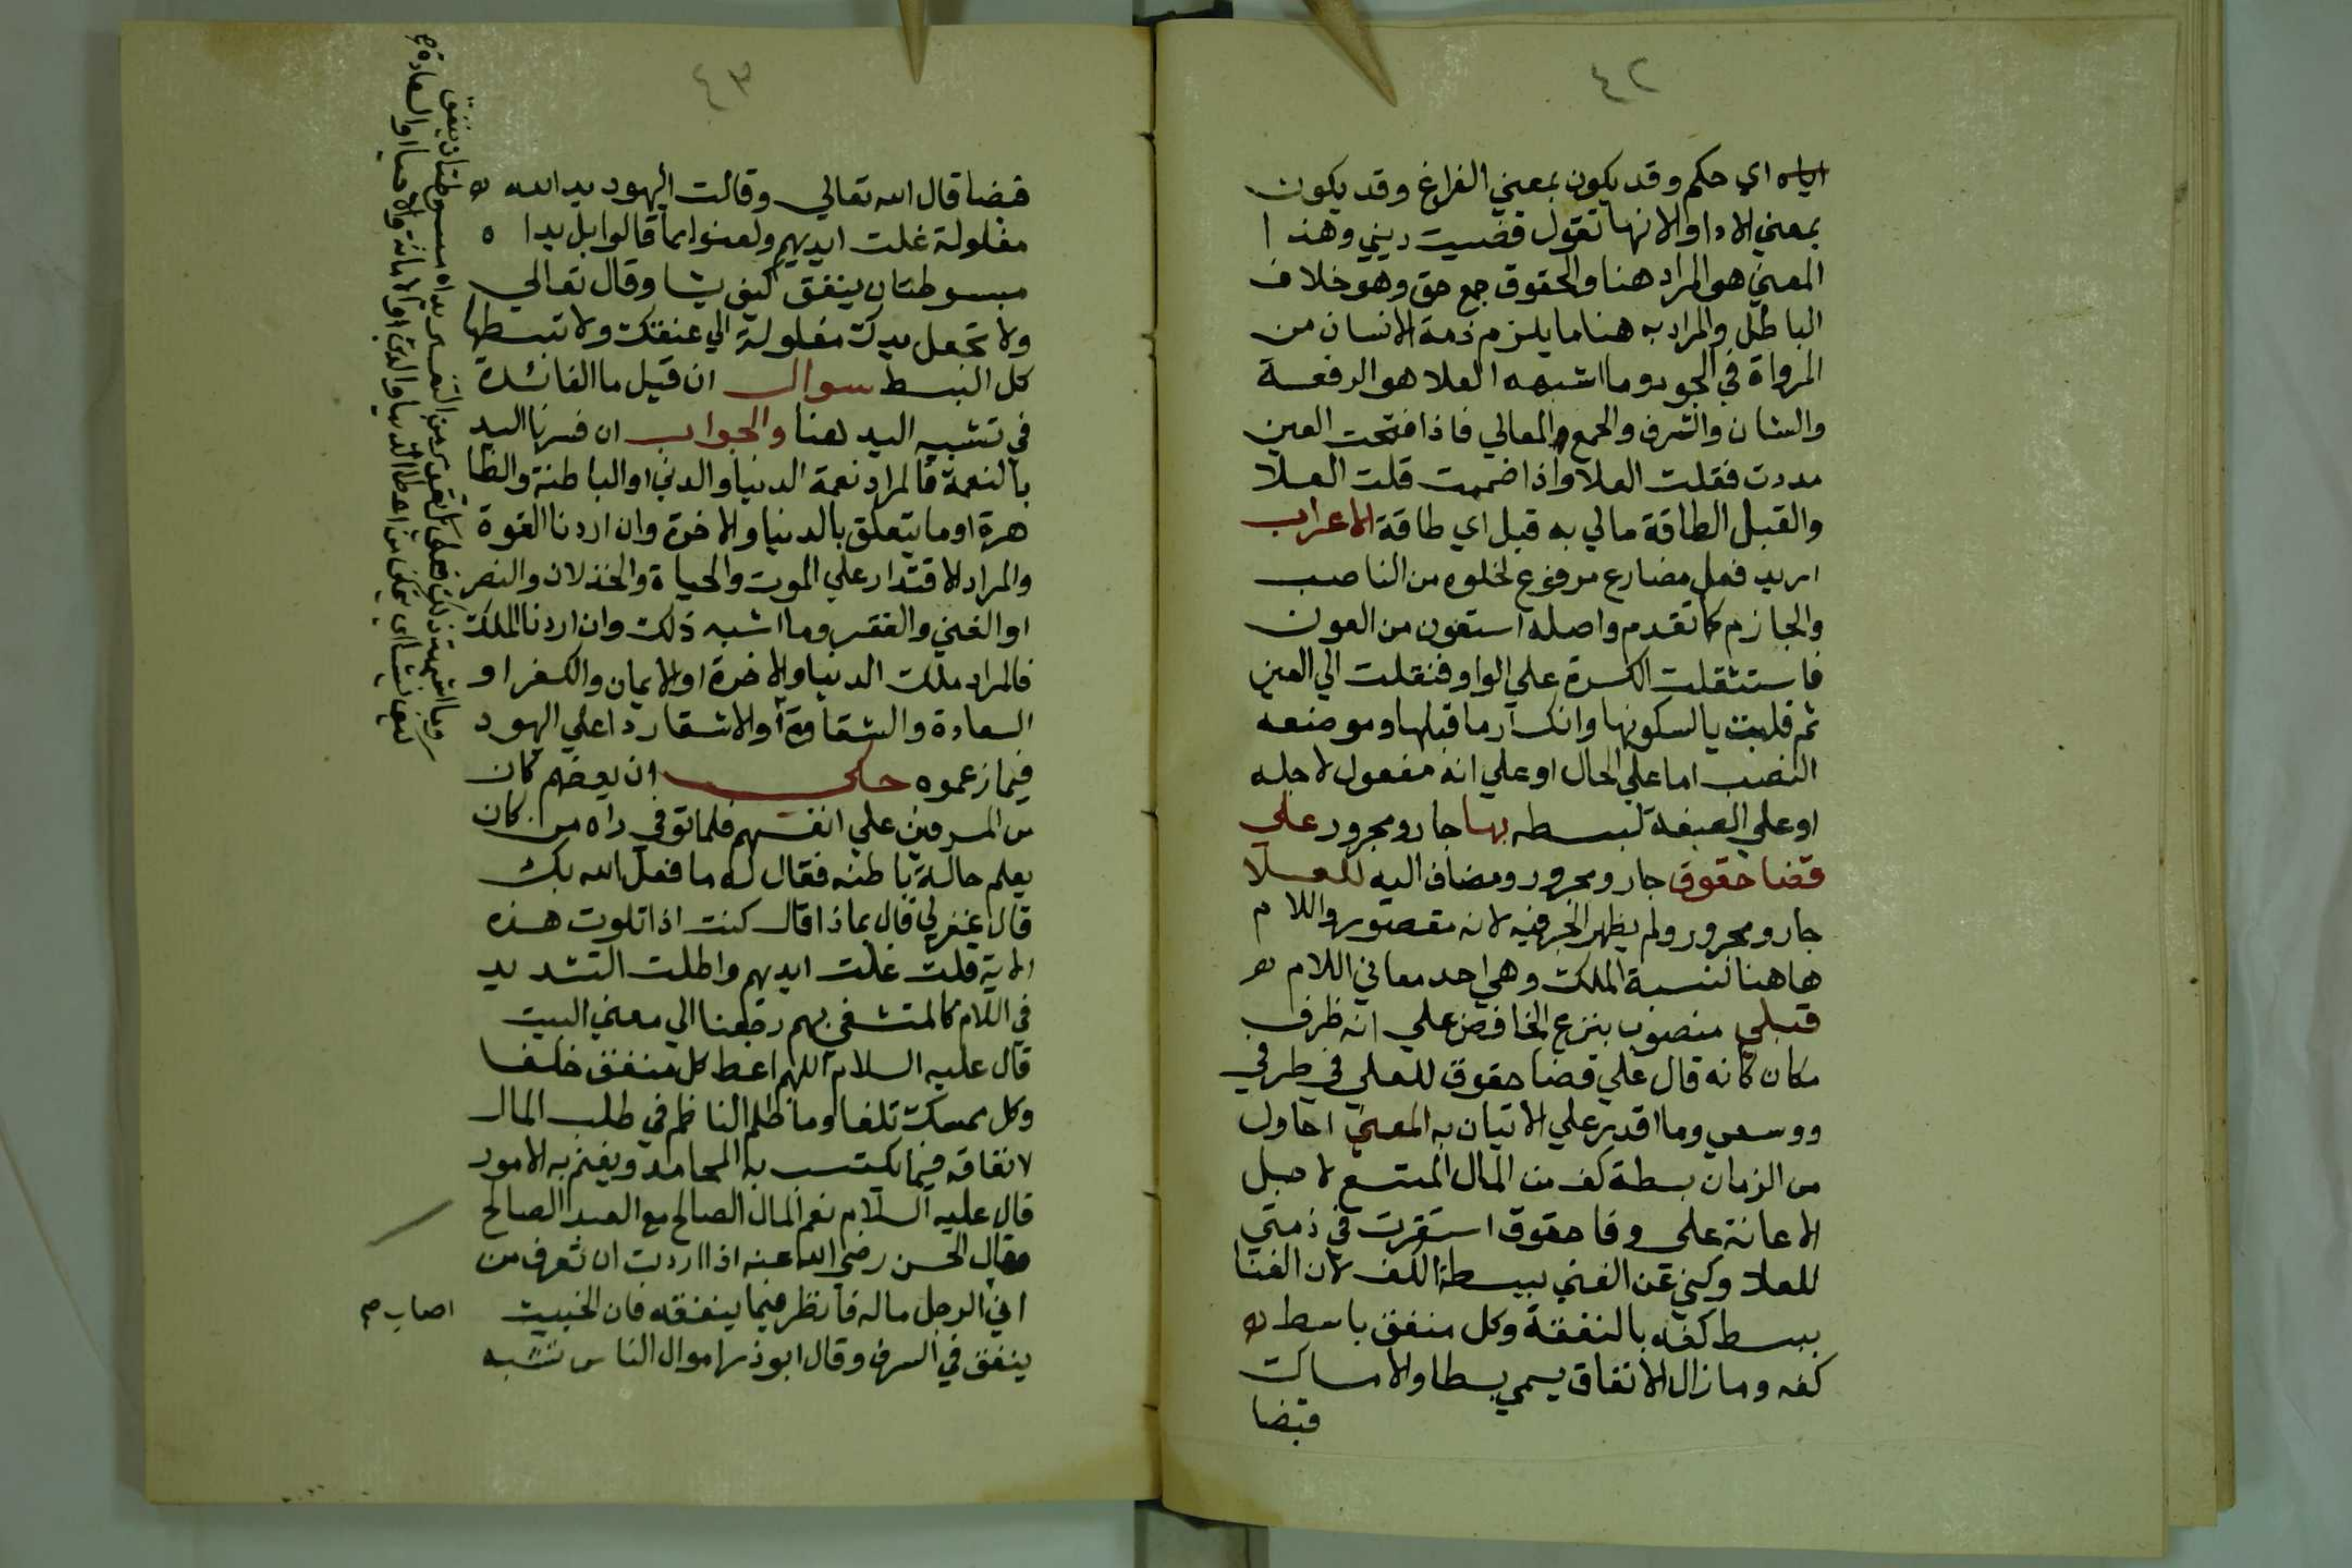 ٤٢
اياه اي حكم وقد يكون بمعني الفراغ وقد يكون
بمعني الادا والانها تقول قضيت ديني وهذا
المعني هو المراد هنا والحقوق جمع حق وهو خلاف
الباطل والمراد به هنا ما يلزم ذمة الانسان من
المرواة في الجود وما اشبهه العلا هو الرفعة
والشان والشرف والجمع المعالي فاذا فتحت العين
مددت فقلت العلا واذا ضممت قلت العلا
والقبل الطاقة مالي به قبل اي طاقة الاعراب
اريد فعل مضارع مرفوع لخلوه من الناصب
والجازم كما تقدم واصله استعون من العون
فاستثقلت الكسرة علي الواو فنقلت الي العين
ثم قلبت يا لسكونها وانكسار ما قبلها وموضعه
النصب اما علي الحال او علي انه مفعول لاجله
او علي الصفة لبسطه بها جار ومجرور علي
قضا حقوق جار ومجرور ومضاف اليه للعلا
جار ومجرور ولم يظهر الجر فيه لانه مقصور واللام
هاهنا لنسبة الملك وهي احد معاني اللام
قبلي منصوب بنزع الخافض علي انه ظرف
مكان كانه قال علي قضا حقوق للعلي في طرفي
ووسعي وما اقدر علي الاتيان به المعني احاول
من الزمان بسطة كف من المال المتسع لاجل
الاعانة علي وفا حقوق استقرت في ذمتي
للعلا وكني عن الغني ببسطة الكف لان الغنا
يبسط كفه بالنفقة وكل منفق باسط
كفه وما زال الانفاق يسمي بسطا والامساك
قبضا
٤٣
قبضا قال الله تعالي وقالت اليهود يد الله
مغلولة غلت ايديهم ولعنوا بما قالوا بل يدا
مبسوطتان ينفق كيف يشا وقال تعالي
ولا تجعل يدك مغلولة الي عنقك ولا تبسطها
كل البسط سوال ان قيل ما الفائدة
في تشبيه اليد هنا والجواب ان فسرنا اليد
بالنعمة فالمراد نعمة الدنيا والدين او الباطنة والظا
هرة او ما يتعلق بالدنيا والاخرة وان اردنا القوة
والمراد الاقتدار علي الموت والحياة والخذلان والنصر
او الغني والفقر وما اشبه ذلك وان اردنا الملك
فالمراد ملك الدنيا والاخرة او الايمان والكفر او
السعادة والشقاوة او الاشقا ردا علي اليهود
فيما زعموه حكي ان بعضهم كان
من المسرفين علي انفسهم فلما توفي راه من كان
يعلم حالة باطنه فقال له ما فعل الله بك
قال غفر لي قال بماذا قال كنت اذا تلوت هذه
الاية قلت غلت ايديهم واطلت التشديد
في اللام كالمتشفي بهم رجعنا الي معني البيت
قال عليه السلام اللهم اعط كل منفق خلفا
وكل ممسك تلفا وما ظلم الناظم في طلب المال
لانفاقه فيما يكتسب به المحامد ويغنم به الامور
قال عليه السلام نعم المال الصالح مع العبد الصالح
وقال الحسن رضي الله عنه اذا اردت ان تعرف من
اين الرجل ماله فانظر فيما ينفقه فان الخبيث
ينفق في السرف وقال ابو ذر اموال الناس تشبه
اصاب صح